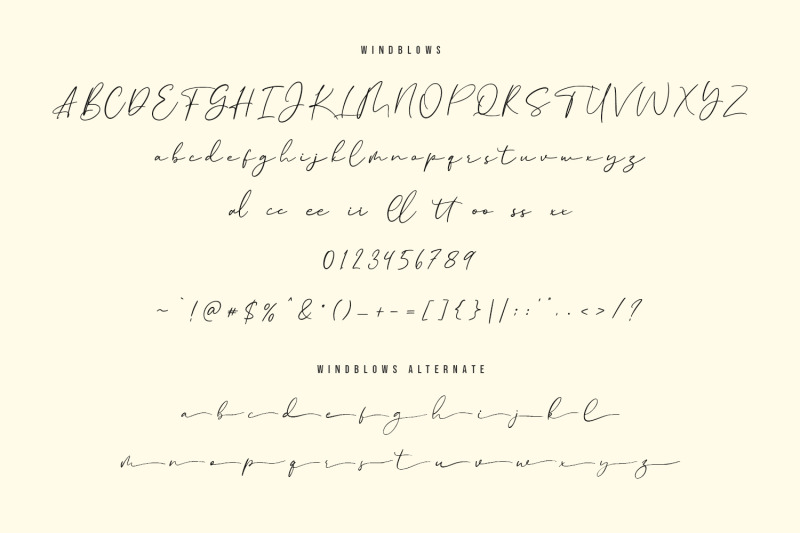 WINDBLOWS
ABCDEFGHIJKLMNOPQRSTUVWXYZ
abcdefghijklmnopqrstuvwxyz
al cc ee ii ll tt oo ss xx
0123456789
~ ` ! @ # $ % ^ & * ( ) _ + - = [ ] { } | | : ; ' " , . < > / ?
WINDBLOWS ALTERNATE
a b c d e f g h i j k l
m n o p q r s t u v w x y z